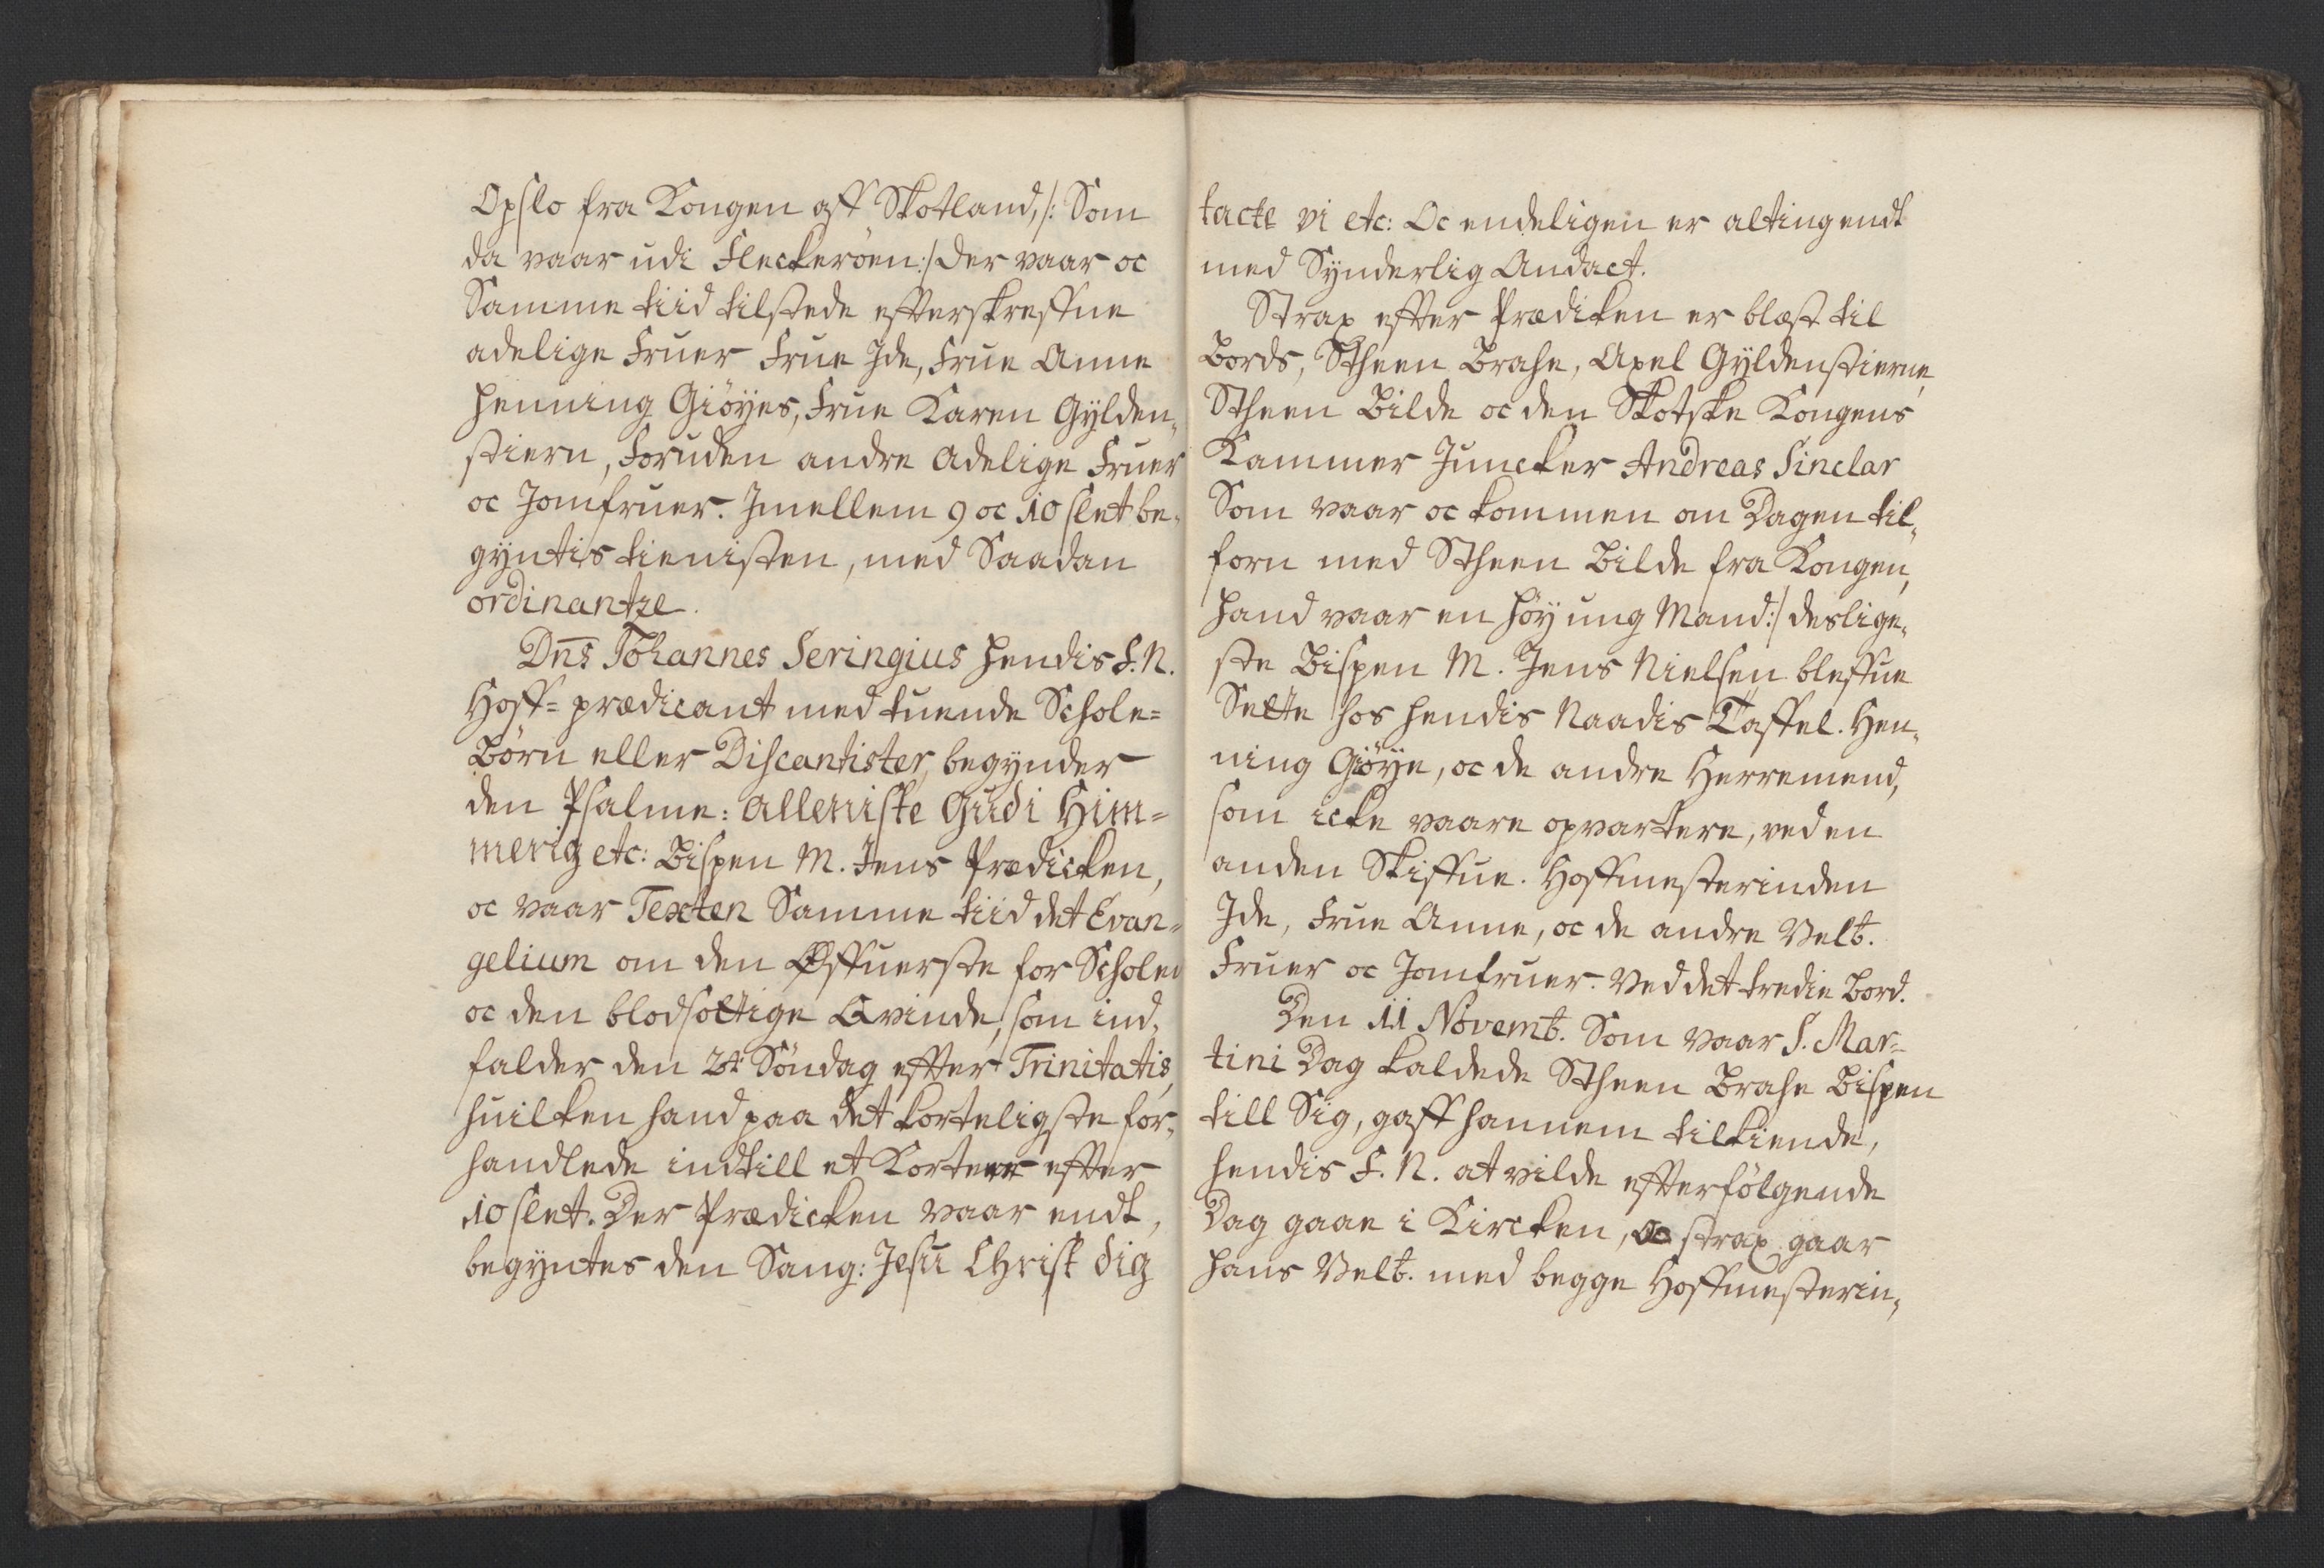 Opslo fra Kongen aff Skotland, /: Som
da vaar udi Fleckerøen:/ der vaar oc
Samme tiid tilstede effterskreffne
adelige Fruer Frue Ide, Frue Anne
Henning Giøyes, Frue Karen Gylden„
stiern, Foruden andre Adelige Fruer
oc Jomfruer. Imellem 9 oc 10 slet be„
gyntis tienisten, med Saadan
ordinantze.
Dns̄ Johannes Seringius Hendis F. N.
Hoff=prædicant med tuende Schole=
Børn eller Discantister, begynder
den Psalme: Alleniste Gudi Him=
merig etc: Bispen M. Jens Prædicken,
oc vaar Texten Samme tiid det Evan=
gelium om den Øffuerste for Scholen
oc den blodsottige Qvinde, som ind„
falder den 24 Søndag effter Trinitatis,
huilken hand paa det korteligste for„
handlede indtill et Korteer effter
10 slet. Der Prædicken vaar endt,
begyntes den Sang: Jesu Christ dig
tacte vi etc: Oc endeligen er alting endt
med Synderlig Andact.
Strax effter Prædiken er blæst til
Bords, Stheen Brahe, Axel Gyldenstierne,
Stheen Bilde oc den Skotske Kongens
Kammer Juncker Andreas Sinclar
Som vaar oc kommen om Dagen til„
forn med Stheen Bilde fra Kongen,
Hand vaar en Høy ung Mand:/ deslige„
ste Bispen M. Jens Nielsen bleffue
Sette hos hendis Naadis Taffel. Hen„
ning Giøye, oc de andre Herremend,
som icke vaare opvartere, ved en
anden Skiffue. Hoffmesterinden
Ide, Frue Anne, oc de andre Velb.
Fruer oc Jomfruer. Ved det tredie Bord.
Den 11 Novemb. Som vaar S. Mar=
tini Dag kaldede Stheen Brahe Bispen
till Sig, gaff hannem tilkiende,
hendis F. N. at vilde effterfølgende
Dag gaae i Kircken, oc strax gaar
hans Velb. med begge Hoffmesterin„